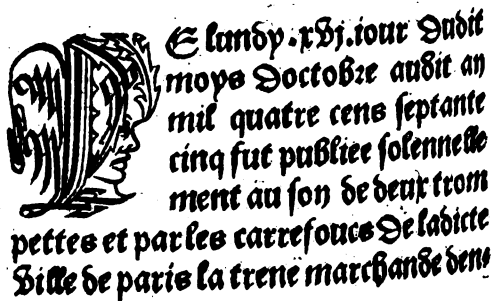 LE lundy .xvj. iour dudit
moys doctobre audit an
mil quatre cens septante
cinq fut publiee solennelle
ment au son de deux trom
pettes et par les carrefoucs de ladicte
Ville de paris la trene marchande dens